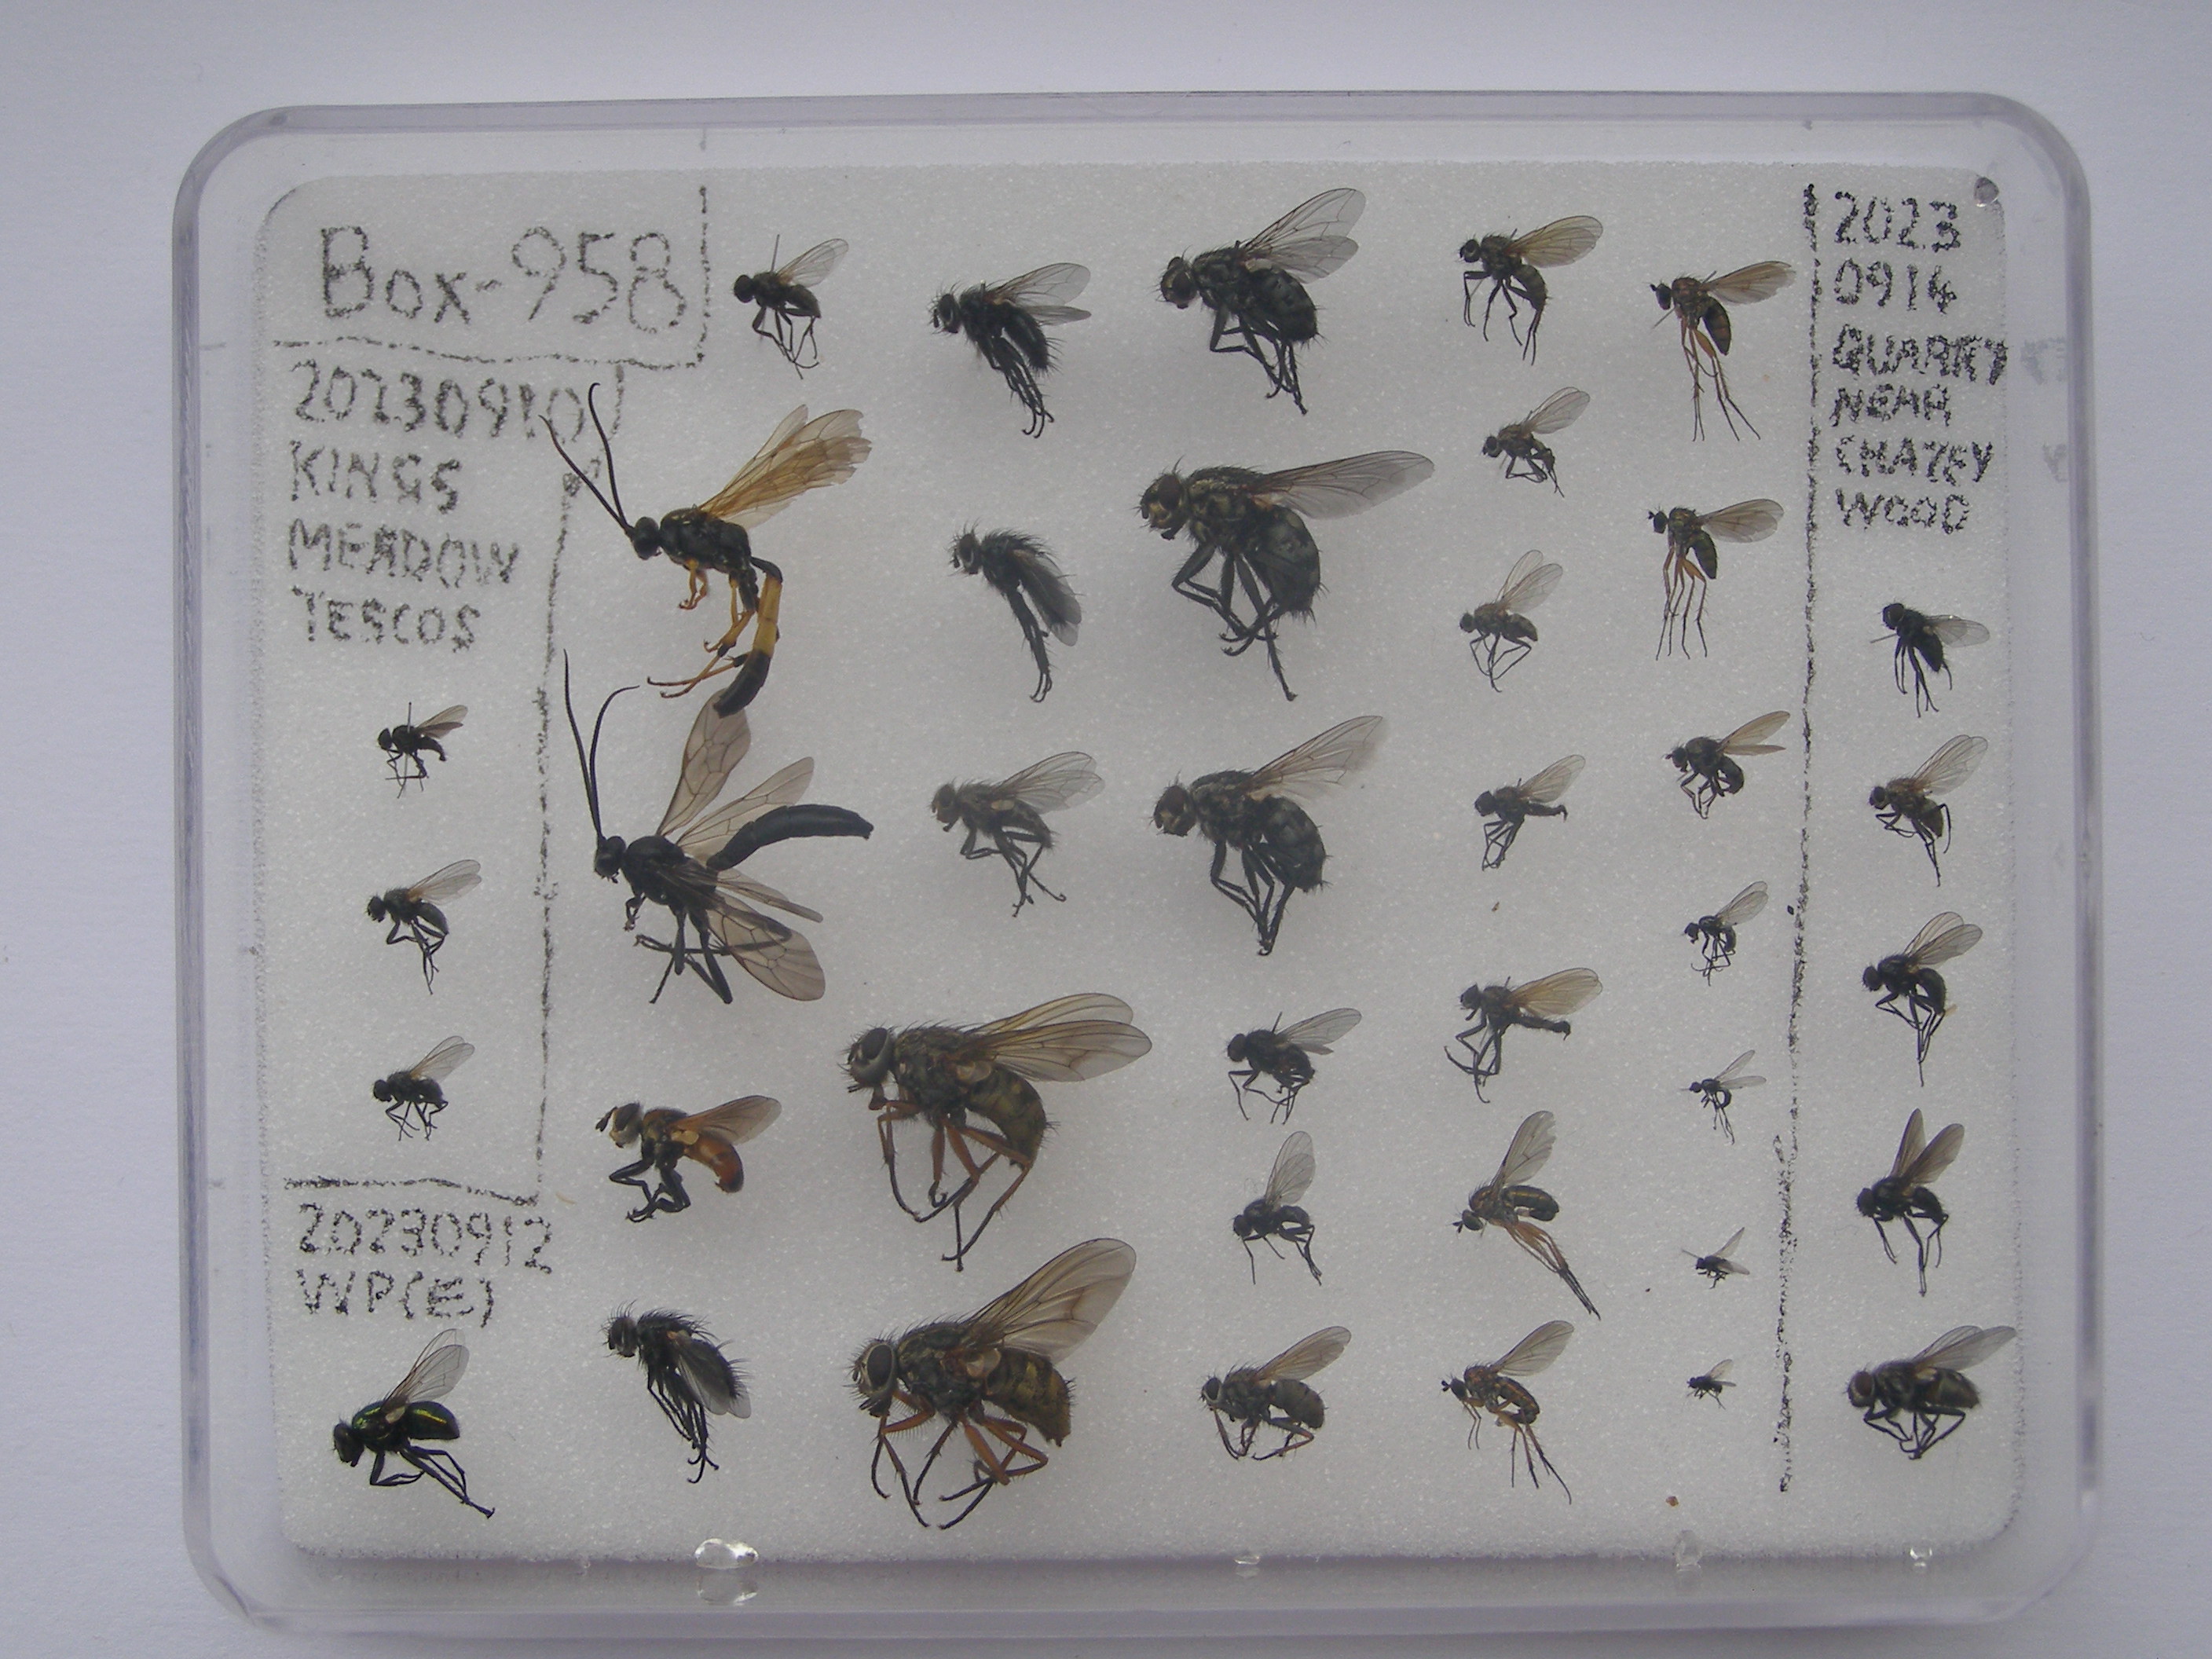 Box-958
20230910
KINGS
MEADOW
TESCOS
20230912
WP(E)
2023
0914
QUARRY
NEAR
CHAZEY
WOOD